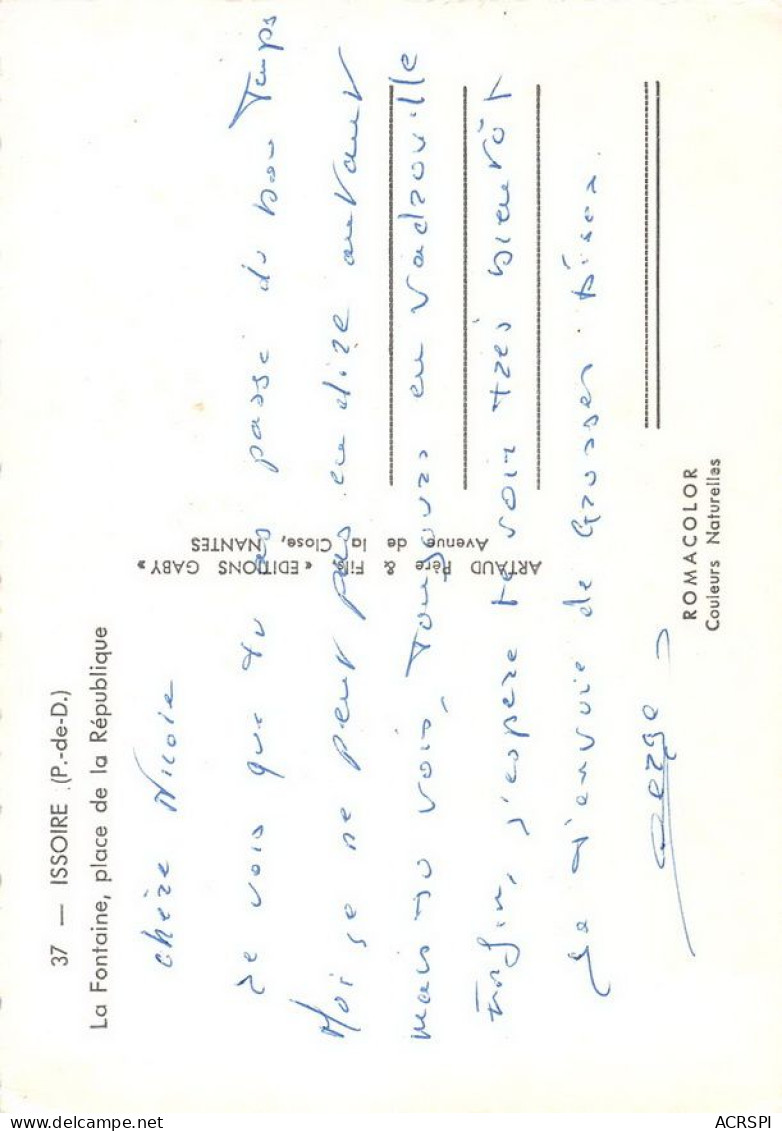 37 — ISSOIRE (P.-de-D.)
La Fontaine, place de la République
chère Nicole
Je vois que tu as passé du bon Temps
Moi je ne peut pas en dire autant
mais tu vois, Toujours en vadrouille
Enfin, j'espère te voir très bientôt
Je t'envoie de Grosses bises.
Serge
ARTAUD Père & Fils « EDITIONS GABY »
Avenue de la Close, NANTES
ROMACOLOR
Couleurs Naturelles
delcampe.net
ACRSPI